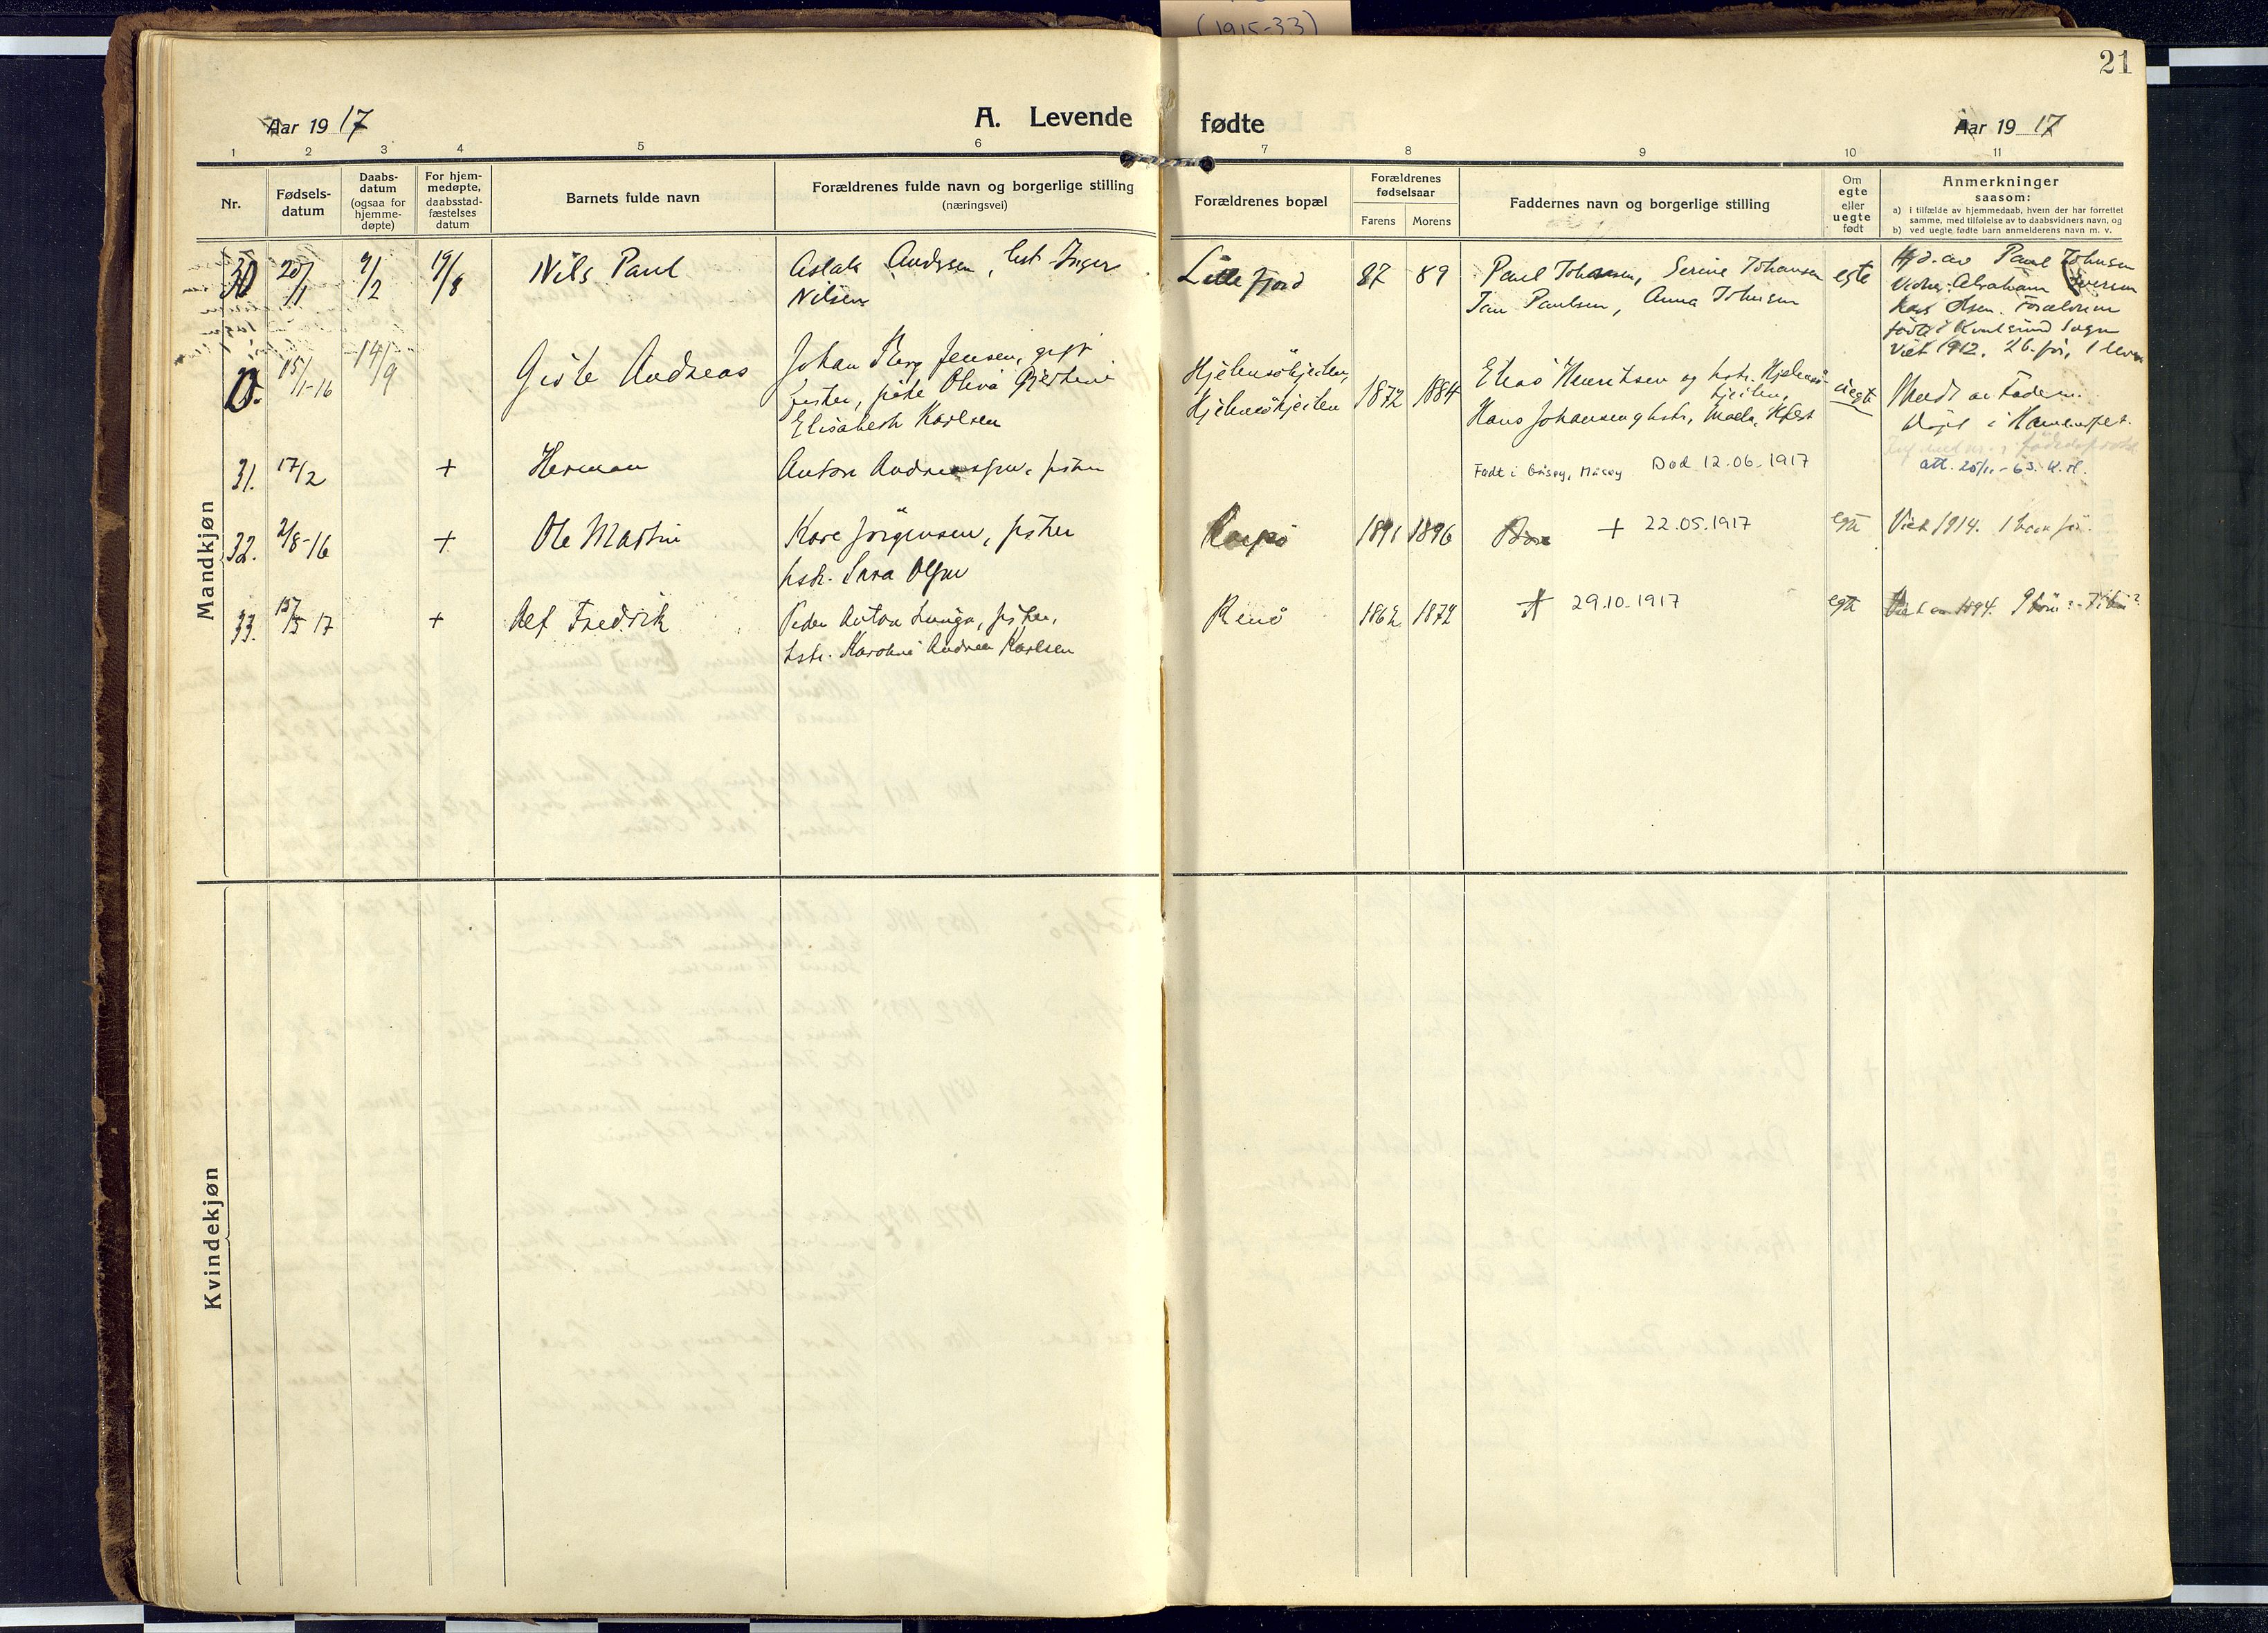 (1915-33)
21
Aar 19 17
A. Levende fødte
Aar 19 17
1 2 3 4 5 6 7 8 9 10 11
Nr.
Fødsels-
datum
Daabs-
datum
(ogsaa for
hjemme-
døpte)
For hjem-
medøpte,
daabsstad-
fæstelses
datum
Barnets fulde navn
Forældrenes fulde navn og borgerlige stilling
(næringsvei)
Forældrenes bopæl
Forældrenes
fødselsaar
Farens Morens
Faddernes navn og borgerlige stilling
Om
egte
eller
uegte
født
Anmerkninger
saasom:
a) i tilfælde av hjemmedaab, hvem der har forrettet
samme, med tilføielse av to daabsvidners navn, og
b) ved uegte fødte barn anmelderens navn m. v.
Mandkjøn
30 20/1 9/2 19/8 Nils Paul
Aslak Andersen, hst. Inger
Nilsen
Lillefjord 87 89
Paul Johnsen, Serine Johansen
Jan Paulsen, Anna Johnsen
egte
Hjd. av Paul Johnsen
Vidner: Abraham Iversen
Olsen. Forældrene
født i Kvalsund Sogn
Viet 1912. 2 b. før, 1 lever
0. 15/1-16 14/9 Giste Andreas
Johan Berg Jensen, gift
fisker, pike Oliva Gjertine
Elisabeth Karlsen
Hjelmsökjeilen,
Hjelmsökjeilen
1872 1884
Elias Henriksen og hstr. Hjelmsö-
kjeilen,
Hans Johansen og hstr,
uegte
Meldt av Faderen.
i
att. 25/11-63.
31. 17/2 + Herman
Anton Andreassen, fisker
Født i Gåsøy, Måsøy Død 12.06.1917
32. 2/8-16 + Ole Martin
Kare Jörgensen, fisker
hstr. Sara Olsen
1891 1896
+ 22.05.1917
egte
Viet 1914. 1 barn før.
33. 15/5 17 + Alf Fredrik
Peder Anton, fisker,
hstr. Karoline Andrea Karlsen
Renö
1862 1872
+ 29.10.1917
egte
1894. 9
Kvindekjøn